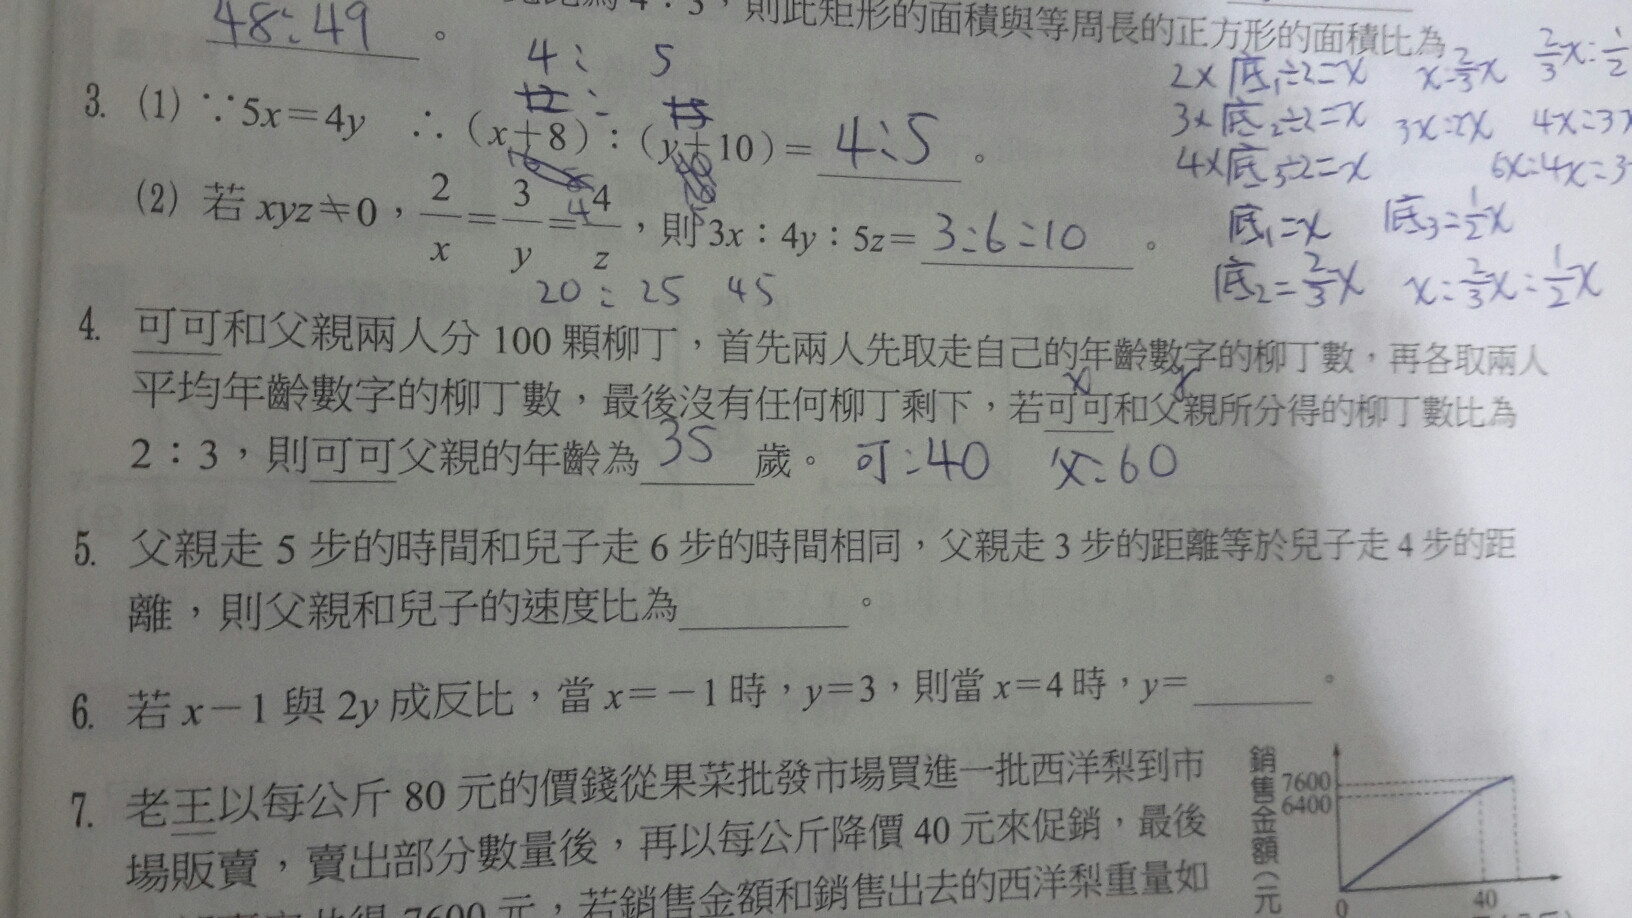 48:49 。
4:3，則此矩形的面積與等周長的正方形的面積比為
4: 5
12: 15
3. (1) ∵5x＝4y ∴（x＋8）：（y＋10）＝ 4:5 。
(2) 若 xyz≠0，2/x＝3/y＝4/z，則 3x：4y：5z＝ 3:6:10 。
20: 25 45
2×底1÷2=x x:2/3x 2/3x:1/2
3×底2÷2=x 3x:2x 4x:3x
4×底3÷2=x 6x:4x:3
底1=x 底3=1/2x
底2=2/3x x:2/3x:1/2x
4. 可可和父親兩人分 100 顆柳丁，首先兩人先取走自己的年齡數字的柳丁數，再各取兩人
平均年齡數字的柳丁數，最後沒有任何柳丁剩下，若可可和父親所分得的柳丁數比為
2：3，則可可父親的年齡為 35 歲。 可:40 父:60
5. 父親走 5 步的時間和兒子走 6 步的時間相同，父親走 3 步的距離等於兒子走 4 步的距
離，則父親和兒子的速度比為 。
6. 若 x－1 與 2y 成反比，當 x＝－1 時，y＝3，則當 x＝4 時，y＝ 。
7. 老王以每公斤 80 元的價錢從果菜批發市場買進一批西洋梨到市
場販賣，賣出部分數量後，再以每公斤降價 40 元來促銷，最後
7600 元，若銷售金額和銷售出去的西洋梨重量如
銷售金額（元
7600
6400
0 40